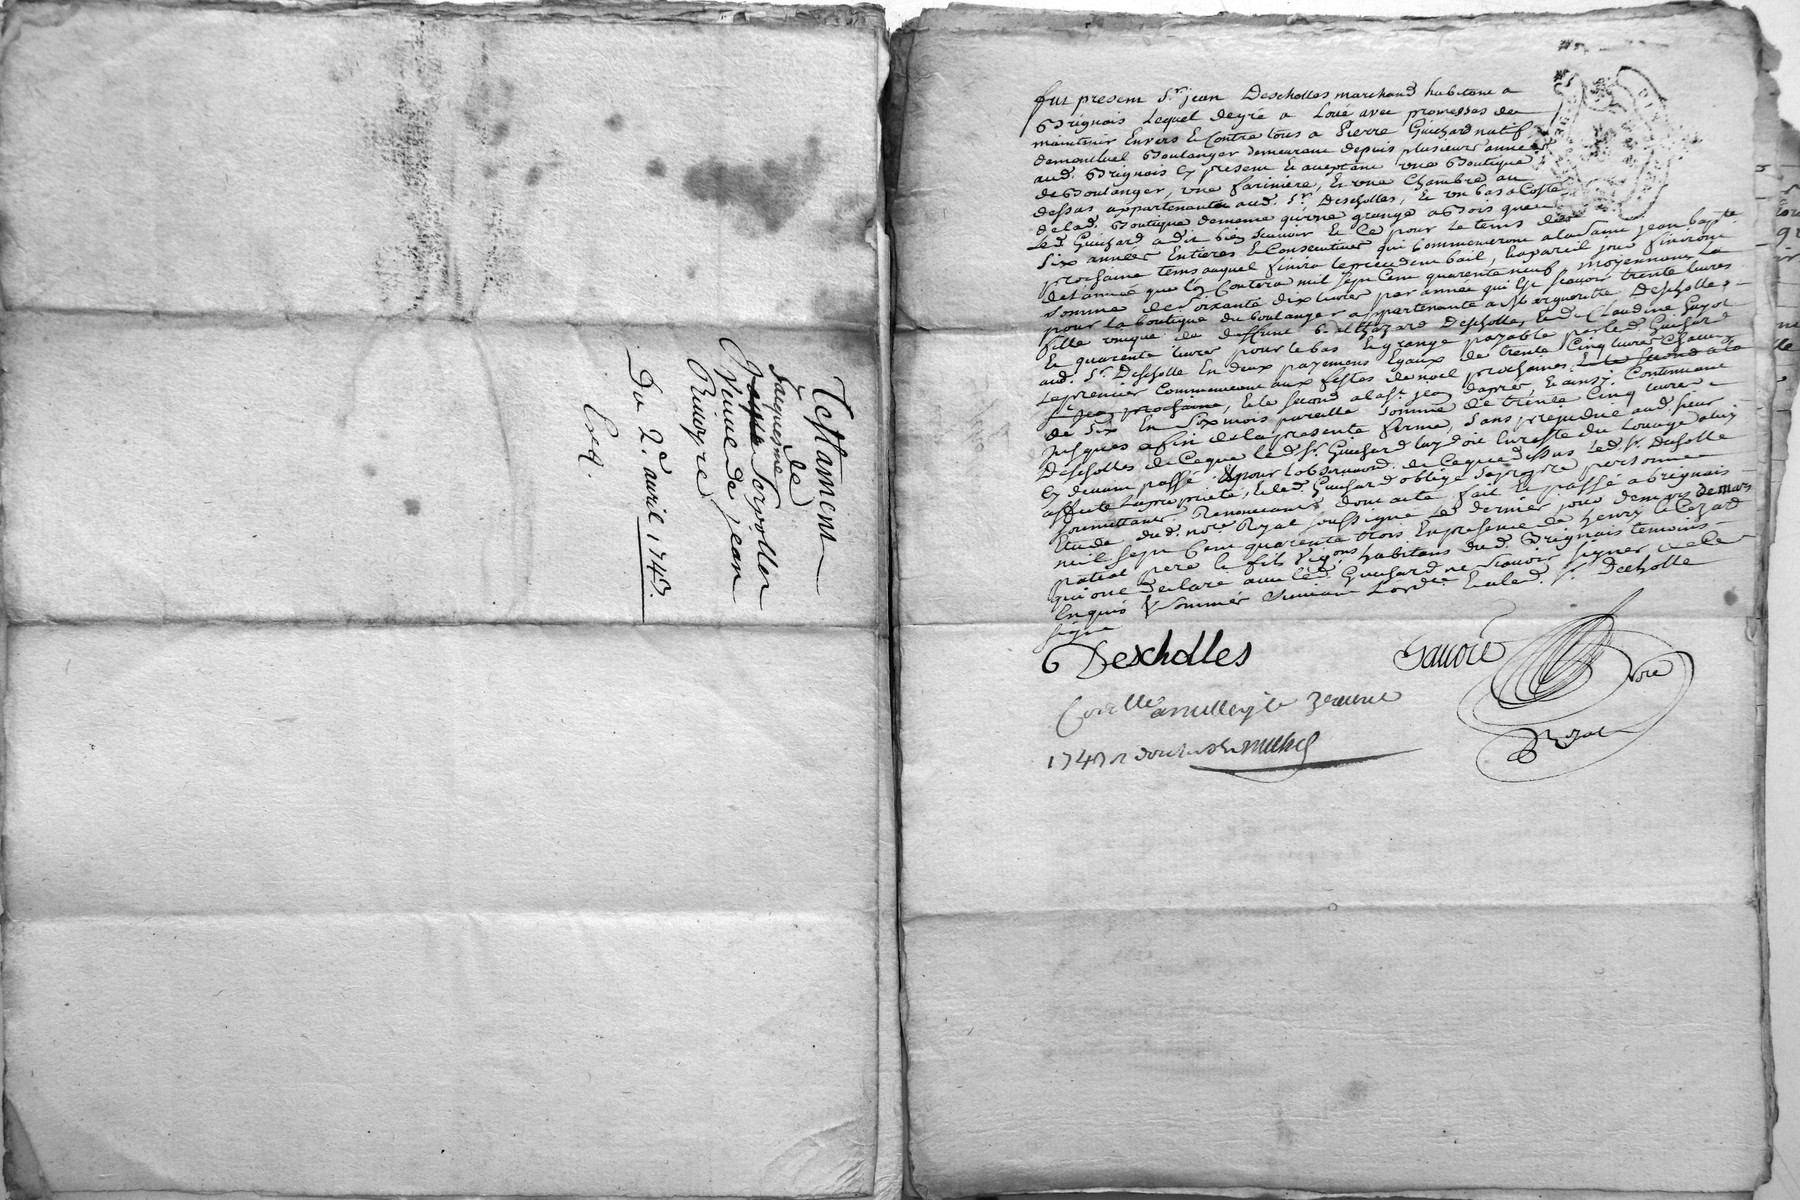 Testament
de
Jacqueme
Servollon
Veuve de jean
Ruuyre
Du 2e. avril 1743.
Exd.
fut present Sr. jean Descholles marchand habitant a
Brignais Lequel degré a Loué avec promesses de
maintenir Envers et Contre tous a Pierre Guichard natif
demontluel Boulanger demeurant depuis plusieurs années
aud. Brignais Cy present Et acceptant une Boutique
de Boulanger, une farinière, Et une Chambre au
dessus appartenantes aud. Sr. Descholles, Et un bas a Costé
delad. Boutique dememe qu'une grange a Bois que
Led. Guichard a dit bien scavoir Et Ce pour le tems de
six années Entieres Et Consecutives qui Commenceront a la saint jean bapte
prochaine tems auquel finira le precedent bail, Et a pareil jour finiront
del'année que l'on Contera mil sept Cent quarente neuf, moyennant La
somme de soixante dix livres par année qui Est scavoir trente livres
pour la boutique du boulanger appartenante a Marguerite Descholles
fille unique du deffunt Balthazard Descholles, Et de Claudine Guyot
Et quarente livres pour le bas Et grange payable par led. Guichard
aud. Sr. Descholle En deux payemens Egaux de trente Cinq livres chacun
Le premier Commencant aux festes de noel prochaines, Et le second a la
St jean prochaine, Et le second a la st jean d'après Et ainsy Continuant
de six En six mois pareille somme de trente Cinq livres
jusques a fin de la presente ferme, sans prejudice aud. sieur
Descholles de Ceque led. Sr. Guichard luy doit En reste du Louage
Cy devant passé. Et pour l'observaon. de Ceque dessus led. Sr. Descholle
affecte La proprieté, Et led. Guichard oblige sa propre personne
soumettant Renonceant dont acte fait Et passé a brignais
Etude dud. nore. Royal soussigné Le dernier jour de mars
mil sept Cent quarente trois En presence de henry le Cezard
patial pere Et fils vignons habitans dud. Brignais temoins
qui ont declaré avec led. Guichard ne scavoir signer de Ce
Enquis Et sommés suivant Lordce. Et led. Sr. Descholle
signé
Descholles
nore
Royal